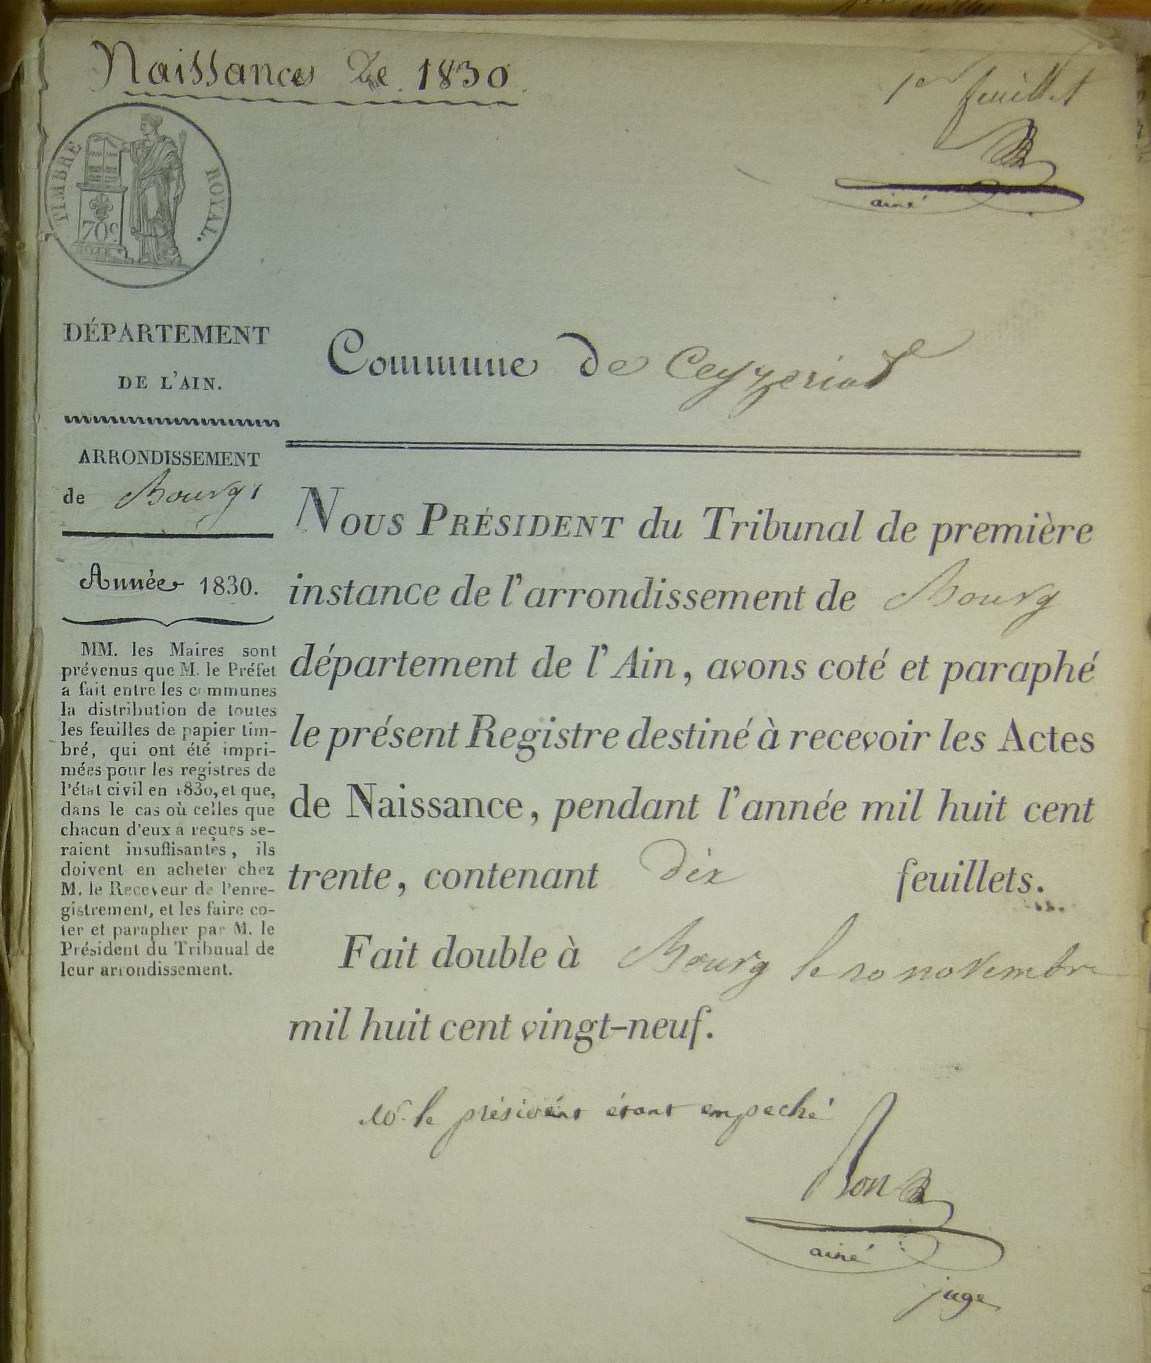 Naissances De 1830
1er feuillet
ainé
TIMBRE ROYAL.
70c
DÉPARTEMENT
DE L'AIN.
ARRONDISSEMENT
de Bourg
Année 1830.
MM. les Maires sont
prévenus que M. le Préfet
a fait entre les communes
la distribution de toutes
les feuilles de papier tim-
bré, qui ont été impri-
mées pour les registres de
l'état civil en 1830, et que,
dans le cas où celles que
chacun d'eux a reçues se-
raient insuffisantes, ils
doivent en acheter chez
M. le Receveur de l'enre-
gistrement, et les faire co-
ter et parapher par M. le
Président du Tribunal de
leur arrondissement.
Commune De Ceyzeriat
NOUS PRÉSIDENT du Tribunal de première
instance de l'arrondissement de Bourg
département de l'Ain, avons coté et paraphé
le présent Registre destiné à recevoir les Actes
de Naissance, pendant l'année mil huit cent
trente, contenant dix feuillets.
Fait double à Bourg le 20 novembre
mil huit cent vingt-neuf.
Mr. le président étant empeché
ainé
juge